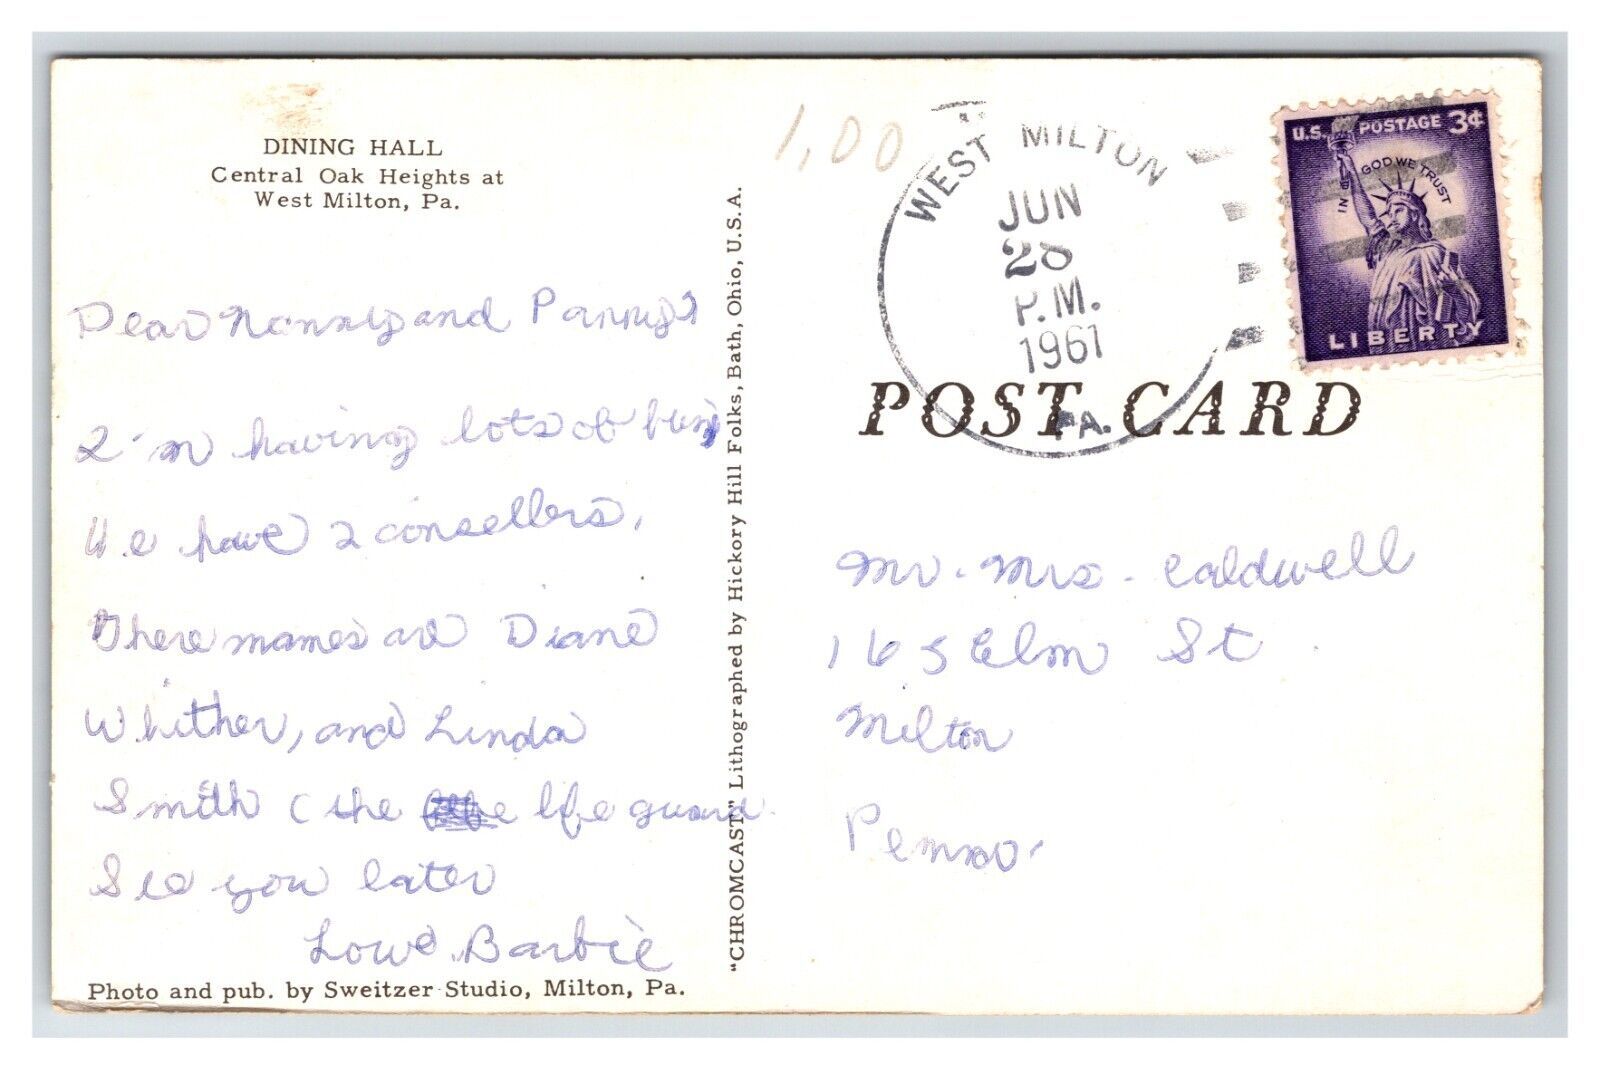 DINING HALL
Central Oak Heights at
West Milton, Pa.
Dear Nanny and Panny,
I'm having lots of fun,
We have 2 consellers,
There names are Diane
Whither, and Linda
Smith ( the life guard.
See you later
Love Barbie
Photo and pub. by Sweitzer Studio, Milton, Pa.
"CHROMCAST" Lithographed by Hickory Hill Folks, Bath, Ohio, U.S.A.
1,00
WEST MILTON
JUN
28
P.M.
1961
PA.
U.S. POSTAGE 3¢
IN GOD WE TRUST
LIBERTY
POST CARD
Mr. Mrs. Caldwell
165 Elm St.
Milton
Penna.